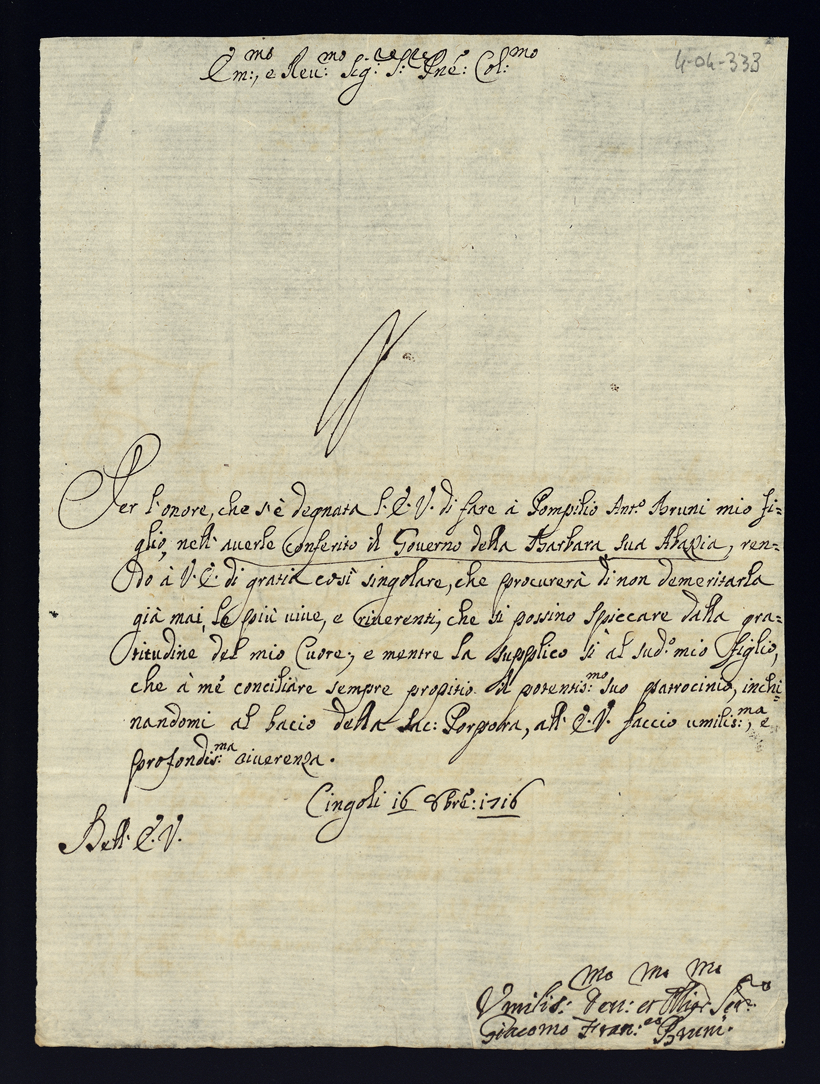 Em:mo, e Reu:mo Sig:re S:re Pne: Col:mo
4-04-333
Per l'onore, che s'è degnata l'E.V. di fare à Pompilio Ant.o Bruni mio fi=
glio, nell'auerle conferito il Gouerno della Barbara sua Abazia, ren=
do à V.E. di gratia così singolare, che procurerà di non demeritarla
già mai, le più uiue, e riuerenti, che si possino spiccare dalla gra=
titudine del mio Cuore; e mentre la supplico sì al sud.o mio figlio,
che à me conciliare sempre propitio il potentis:mo suo patrocinio, inchi=
nandomi al bacio della Sac: Porpora, all'E.V. faccio umilis:ma, e
profondis:ma riuerenza.
Cingoli 16 8bre: 1716
Dell'E.V.
Vmilis:mo Deu:mo et Obligt:mo Seru:re
Giacomo Fran:co Bruni